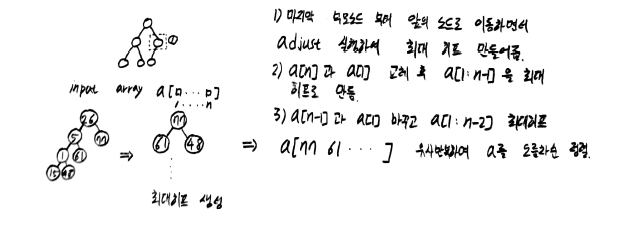 ①
input array a[□ ···· □]
1 ...... n
26
5
77
1
61
15
48
⇒
77
61
48
최대히프 생성
1) 마지막 부모노드 부터 앞의 노드로 이동하면서
adjust 실행하여 최대 히프 만들어줌.
2) a[n]과 a[1] 교체 후 a[1:n-1]을 최대
히프로 만듦.
3) a[n-1]과 a[1] 바꾸고 a[1:n-2] 최대히프
⇒ a[77 61 ····] 유사반복하여 a를 오름차순 정렬.